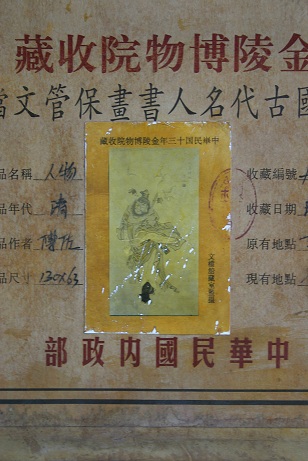 金陵博物院收藏
國古代名人書畫保管文檔
中華民国十三年金陵博物院收藏
品名稱 人物
品年代 清
品作者
品尺寸 130x63
收藏編號
收藏日期
原有地點
現有地點
中華民國內政部